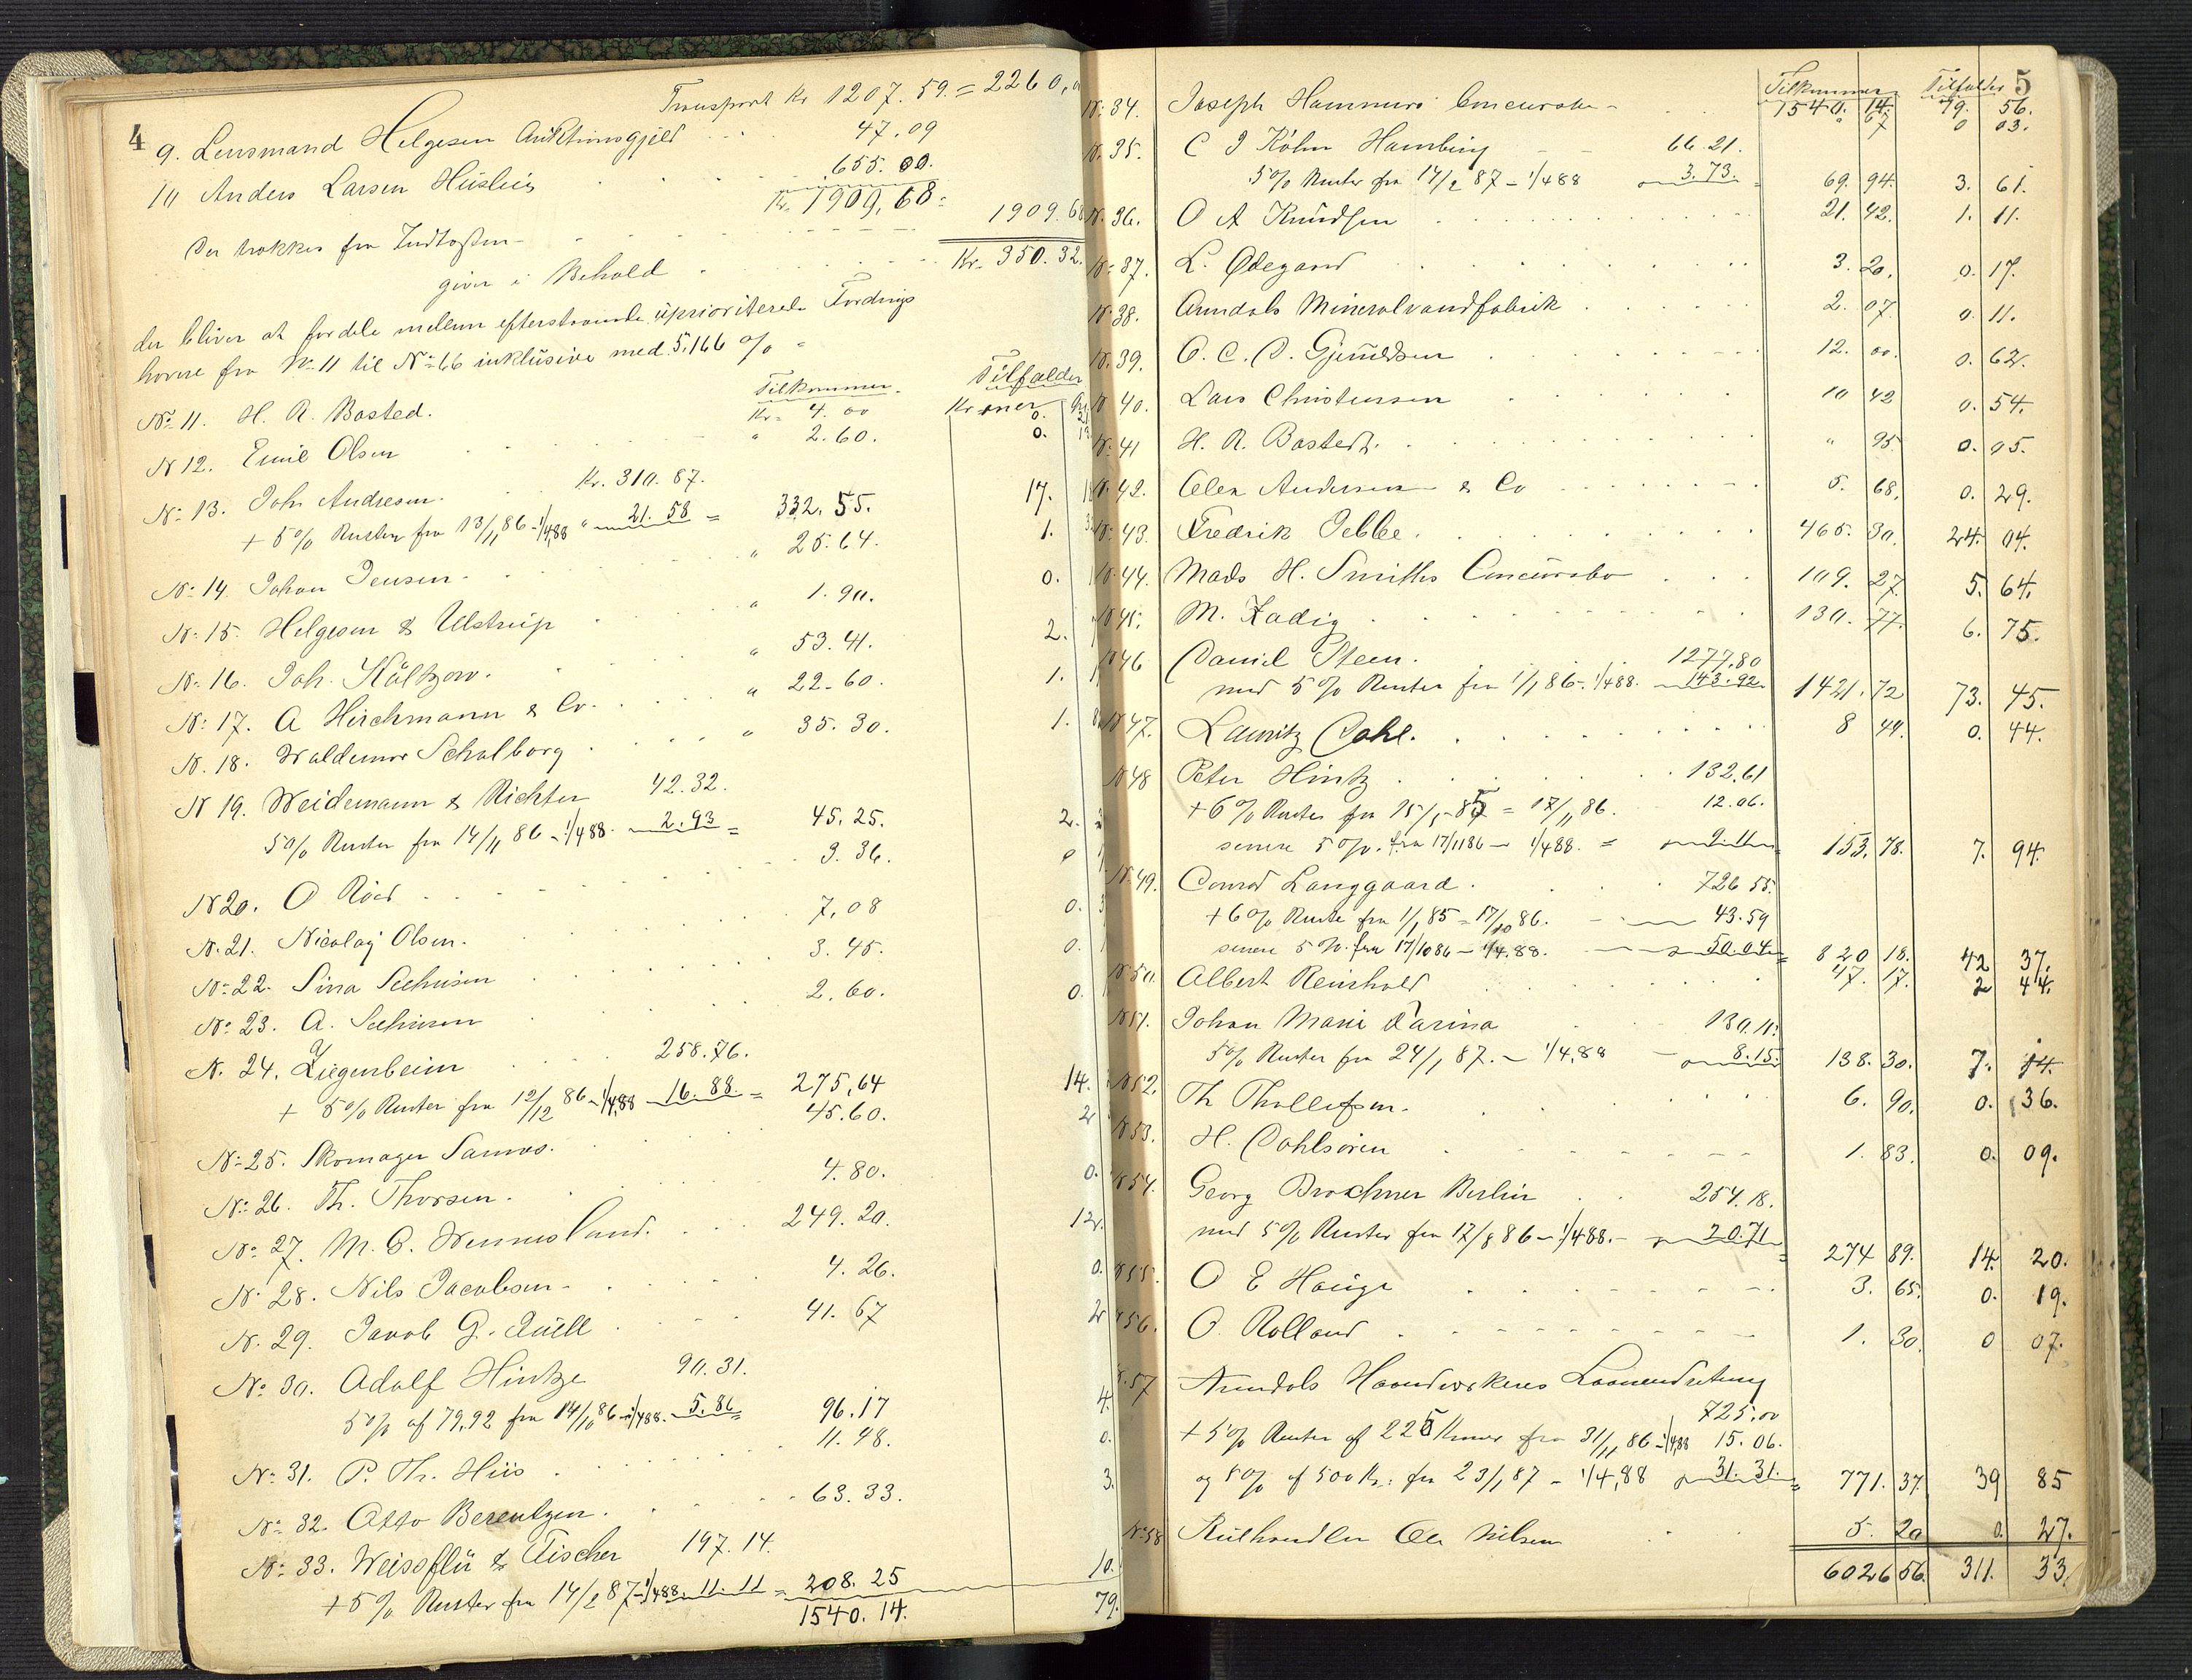 4
Transport Kr 1207.59. = 2260,0
9. Lensmand Helgesen Auktionsgjeld 47.09
10 Anders Larsen Husleie 655.00.
Kr. 1909,68.
Der trækkes fra Indtægten 1909.68
giver i Behold Kr. 350.32.
der bliver at fordele mellem efterstaaende uprioriterede Fordrings
havere fra No 11 til No 66 inklusive med 5,166 %
Tilkommer. Tilfalder
No 11. H. R. Basted. Kr. 4.00 Kroner 0.
N 12. Emil Olsen " 2.60. 0.
No 13. Joh. Andresen. Kr. 310.87.
+ 5% Renter fra 13/11 86 - 1/4 88 " 21.58 = 332.55. 17.
No 14. Johan Jensen. " 25.64. 1.
No 15. Helgesen & Ulstrup " 1.90. 0.
No 16. Joh. Kültzow. " 53.41. 2.
No 17. A Hirchmann & Co. " 22.60. 1.
N. 18. Waldemar Schalborg " 35.30. 1.
N 19. Weidemann & Richter 42.32.
5% Renter fra 14/11 86 - 1/4 88. 2.93 = 45.25. 2.
N 20. O Röed 3.36. 0
N. 21. Nicolay Olsen. 7,08 0.
No 22. Sina Seehusen 3.45. 0.
No 23. A. Seehusen 2.60. 0.
N. 24. Ziegenbeim 258.76.
+ 5% Renter fra 12/12 86 - 1/4 88 16.88 = 275,64 14.
No 25. Skomager Sannes. 45.60. 2
No 26. Th. Thorsen. 4.80. 0.
No 27. M. G. Wennesland. 249.20. 12.
No 28. Nils Jacobsen 4.26. 0.
N. 29. Jacob G. Quell 41.67 2
No 30. Adolf Hintze 90.31.
5% af 79,92 fra 14/10 86 - 1/4 88. 5.86 = 96.17 4.
No 31. P. Th. Hiis 11.48. 0.
No 32. Otto Berentzen. 63.33. 3.
No 33. Weissflü & Fischer 197.14.
+ 5% Renter fra 14/2 87 - 1/4 88. 11.11 = 208.25 10.
1540.14. 79.
5
Tilkommer Tilfalder
1540. 14. 79. 56.
N. 34. Joseph Hammers Concursbo " 67 0 03.
N. 35. C J Köhn Hamburg 66.21.
5% Renter fra 14/2 87 - 1/4 88 3.73. = 69. 94. 3. 61.
N. 36. O A Knudsen 21. 42. 1. 11.
N. 37. L. Ødegaard 3. 20. 0. 17.
N. 38. Arendals Mineralvandfabrik 2. 07 0. 11.
N. 39. O. C. O. Gjeruldsen 12. 00. 0. 62.
N 40. Lars Christensen 10 42 0. 54.
N. 41 H. R. Basted. " 95 0. 05.
N. 42. Olea Andersen & Co 5. 68. 0. 29.
N. 43. Fredrik Tebbe. 465. 30. 24. 04.
N. 44. Mads H. Smiths Concursbo 109. 27. 5. 64.
N 45. M. Zadig 130. 77. 6. 75.
N 46 Daniel Steen. 1277.80
med 5% Renter fra 1/1 86 - 1/4 88. 143.92 1421. 72 73. 45.
N 47. Lauritz Dahl. 8 44. 0. 44.
N 48 Peter Hintz 132.61
+ 6% Renter fra 15/5 85 = 17/11 86. 12.06.
senere 5%. fra 17/11 86 - 1/4 88. = 153. 78. 7. 94.
N. 49. Conrad Langgaard. 726 55.
+ 6% Rente fra 1/1 85 - 17/10 86. 43.59
senere 5 %. fra 17/10 86 - 1/4.88. 50.04 = 820 18. 42 37.
N. 50. Albert Reinhold 47. 17. 2 44.
N 51. Johan Marie Farina 130.11.
5% Renter fra 24/1 87. - 1/4.88 8.15. 138. 30. 7. 14.
N 52. Th Thollefsen. 6. 90. 0. 36.
N 53. H. Dahlsören 1. 83. 0. 09.
N 54. Georg Brochner Berlin 254.18.
med 5% Renter fra 17/8 86 - 1/4 88. - 20.71 = 274 89. 14. 20.
N 55. O E Hauge 3. 65. 0. 19.
N 56. O. Rolland 1. 30. 0 07.
N. 57 Arendals Haandværkeres Laaneindretning
725,00
+ 5% Renter af 225 Kroner fra 31/11 86 - 1/4 88 15.06.
og 5% af 500 Kr. fra 23/1 87 - 1/4.88 31.31. = 771. 37. 39 85
No 58 Kulhandler Ole Nilsen 5. 20 0. 27.
6026 56. 311. 33.